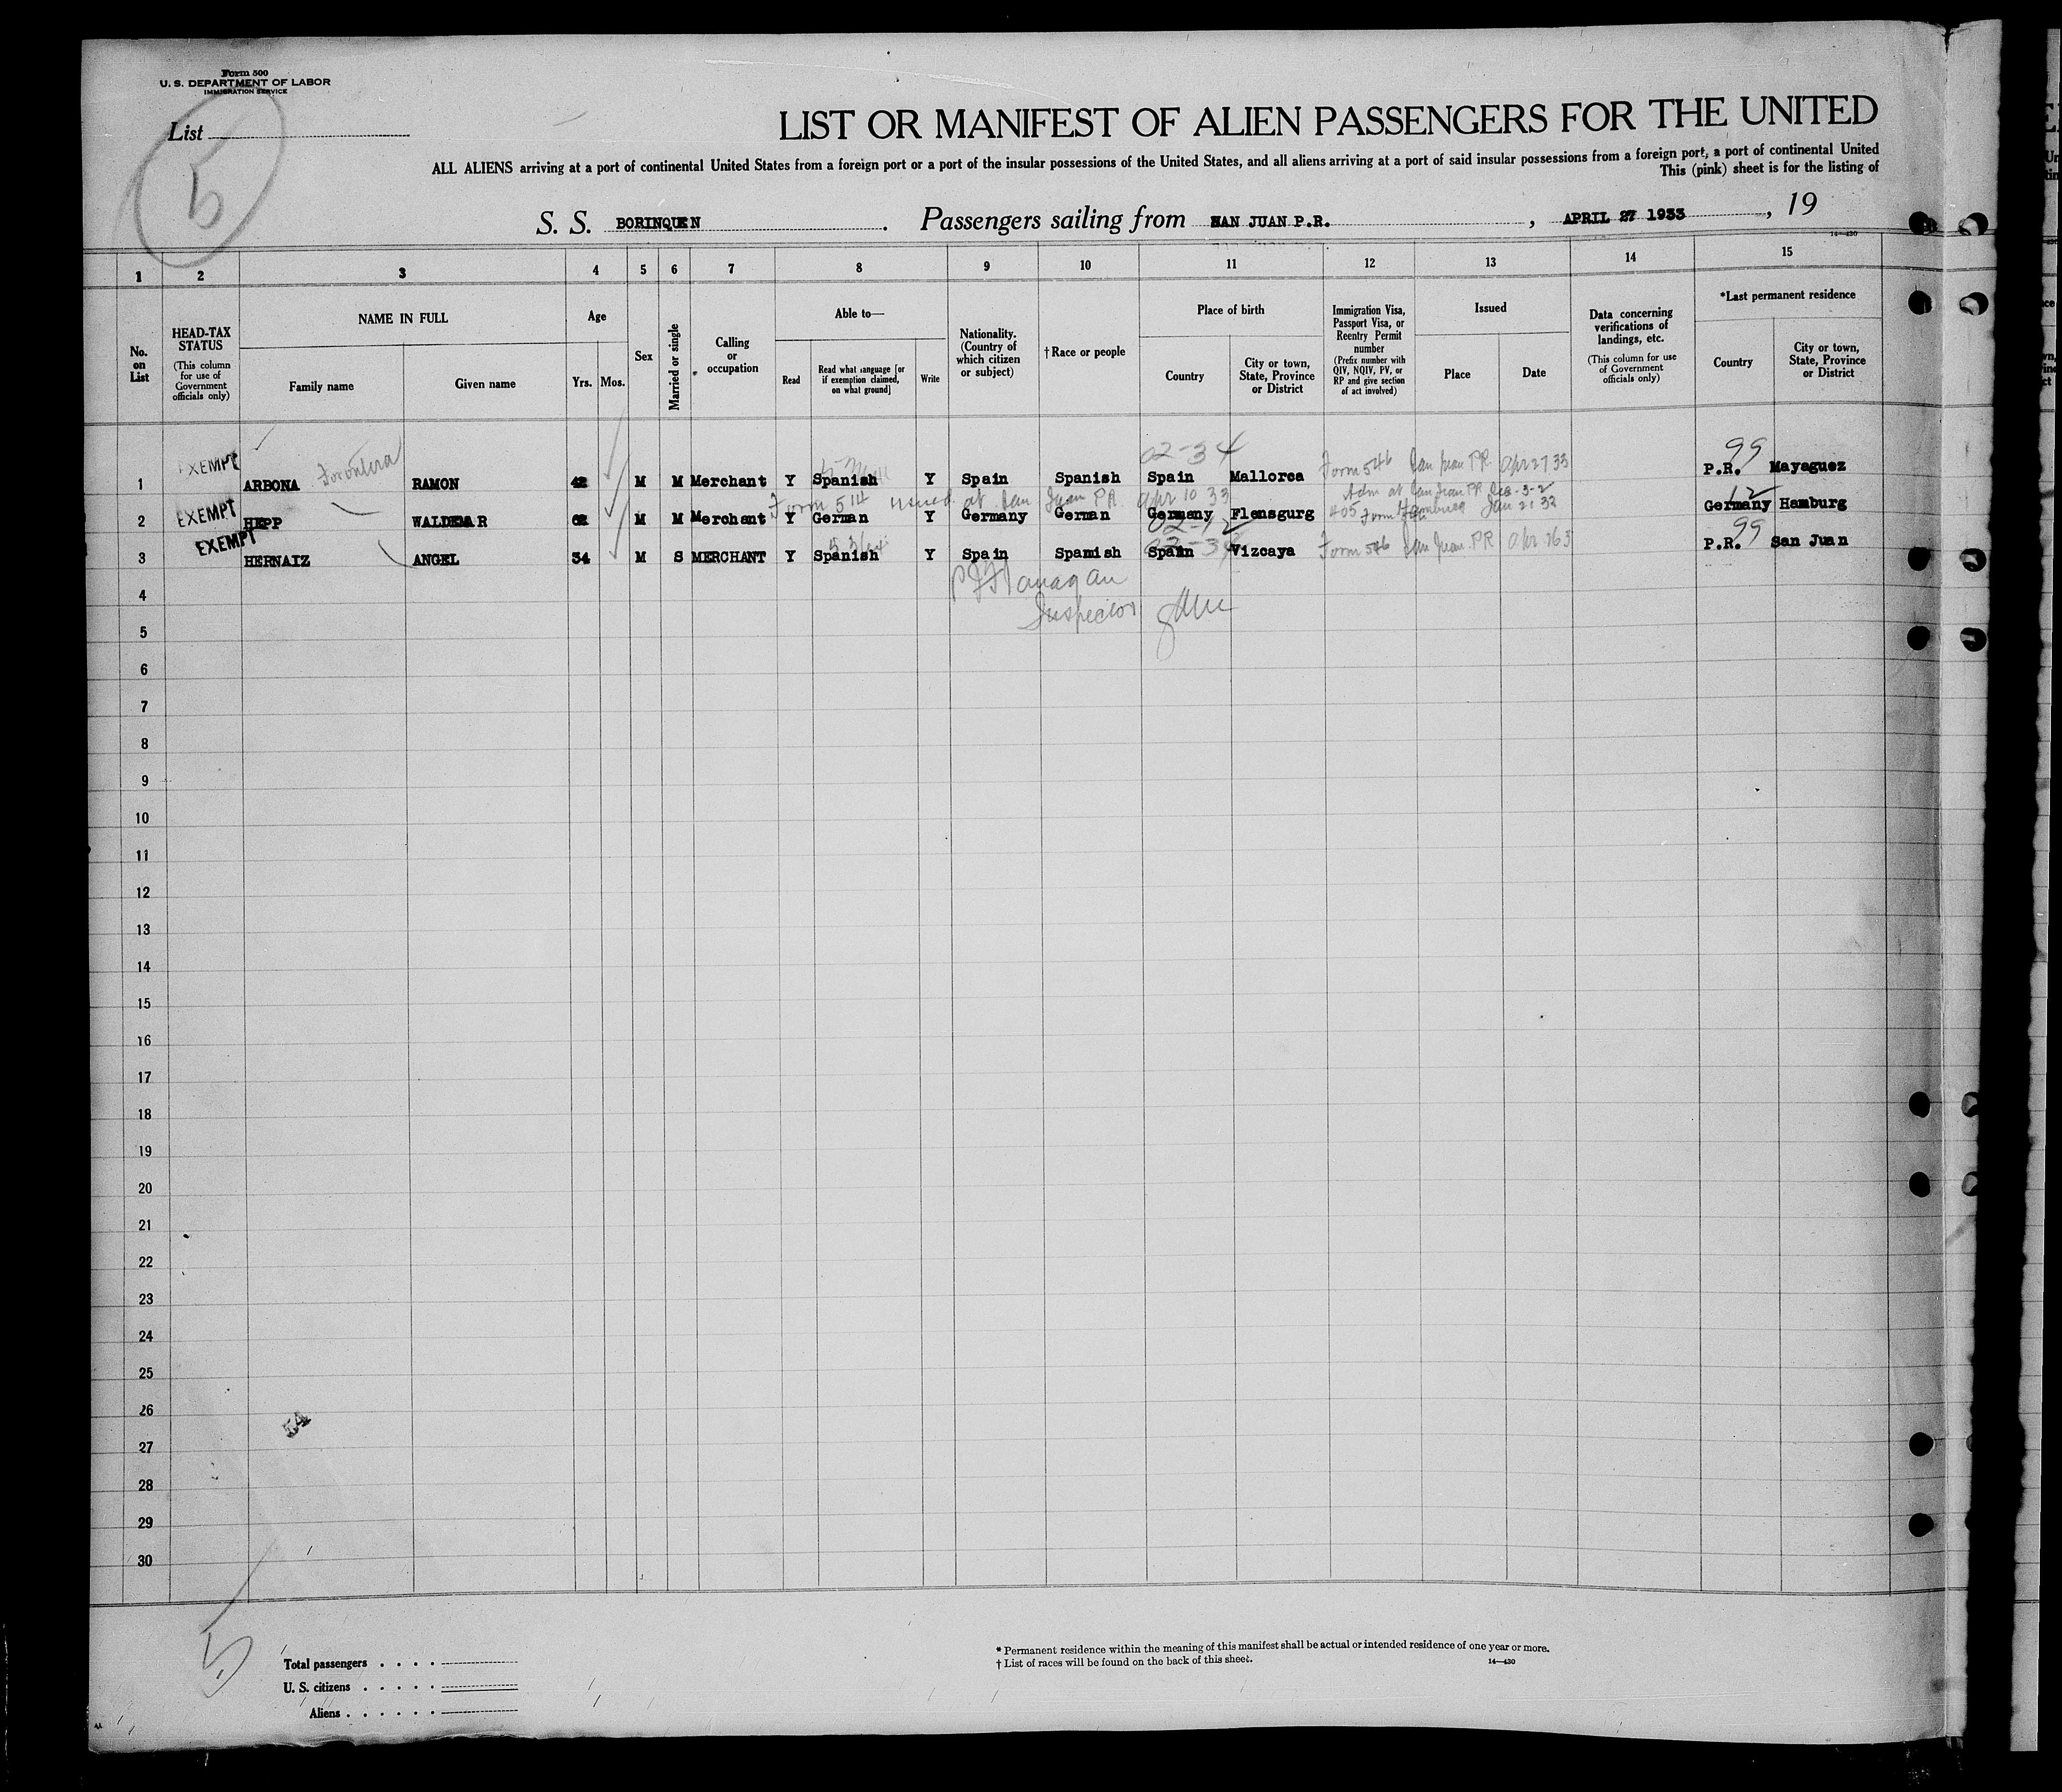 Form 500
U. S. DEPARTMENT OF LABOR
IMMIGRATION SERVICE
List
5
LIST OR MANIFEST OF ALIEN PASSENGERS FOR THE UNITED
ALL ALIENS arriving at a port of continental United States from a foreign port or a port of the insular possessions of the United States, and all aliens arriving at a port of said insular possessions from a foreign port, a port of continental United
This (pink) sheet is for the listing of
S. S. BORINQUEN. Passengers sailing from SAN JUAN P.R., APRIL 27 1933, 19
14—430
1 2 3 4 5 6 7 8 9 10 11 12 13 14 15
No. on List
HEAD-TAX STATUS
(This column for use of Government officials only)
NAME IN FULL
Family name
Given name
Age
Yrs. Mos.
Sex
Married or single
Calling or occupation
Able to—
Read
Read what language [or if exemption claimed, on what ground]
Write
Nationality. (Country of which citizen or subject)
†Race or people
Place of birth
Country
City or town, State, Province or District
Immigration Visa, Passport Visa, or Reentry Permit number
(Prefix number with QIV, NQIV, PV, or RP and give section of act involved)
Issued
Place
Date
Data concerning verifications of landings, etc.
(This column for use of Government officials only)
*Last permanent residence
Country
City or town, State, Province or District
02-34 99
1 EXEMPT ARBONA Frontera RAMON 42 M M Merchant Y Spanish Y Spain Spanish Spain Mallorca Form 546 San Juan PR Apr 27 33 P.R. Mayaguez
Form 514 issued at San Juan P.R. Apr 10 33 Adm at San Juan PR
2 EXEMPT HEPP WALDEMAR 62 M M Merchant Y German Y Germany German Germany Flensgurg 405 Form Hamburg Jan 21 32 Germany Hamburg
02-12 12
02-34 99
3 EXEMPT HERNAIZ ANGEL 34 M S MERCHANT Y Spanish Y Spain Spanish Spain Vizcaya Form 546 San Juan PR Apr 26 3 P.R. San Juan
4
P J Flanagan
5
Inspector
6
7
8
9
10
11
12
13
14
15
16
17
18
19
20
21
22
23
24
25
26
54
27
28
29
30
5
Total passengers . . . .
U. S. citizens . . . . .
Aliens . . . . . .
* Permanent residence within the meaning of this manifest shall be actual or intended residence of one year or more.
† List of races will be found on the back of this sheet.
14—430